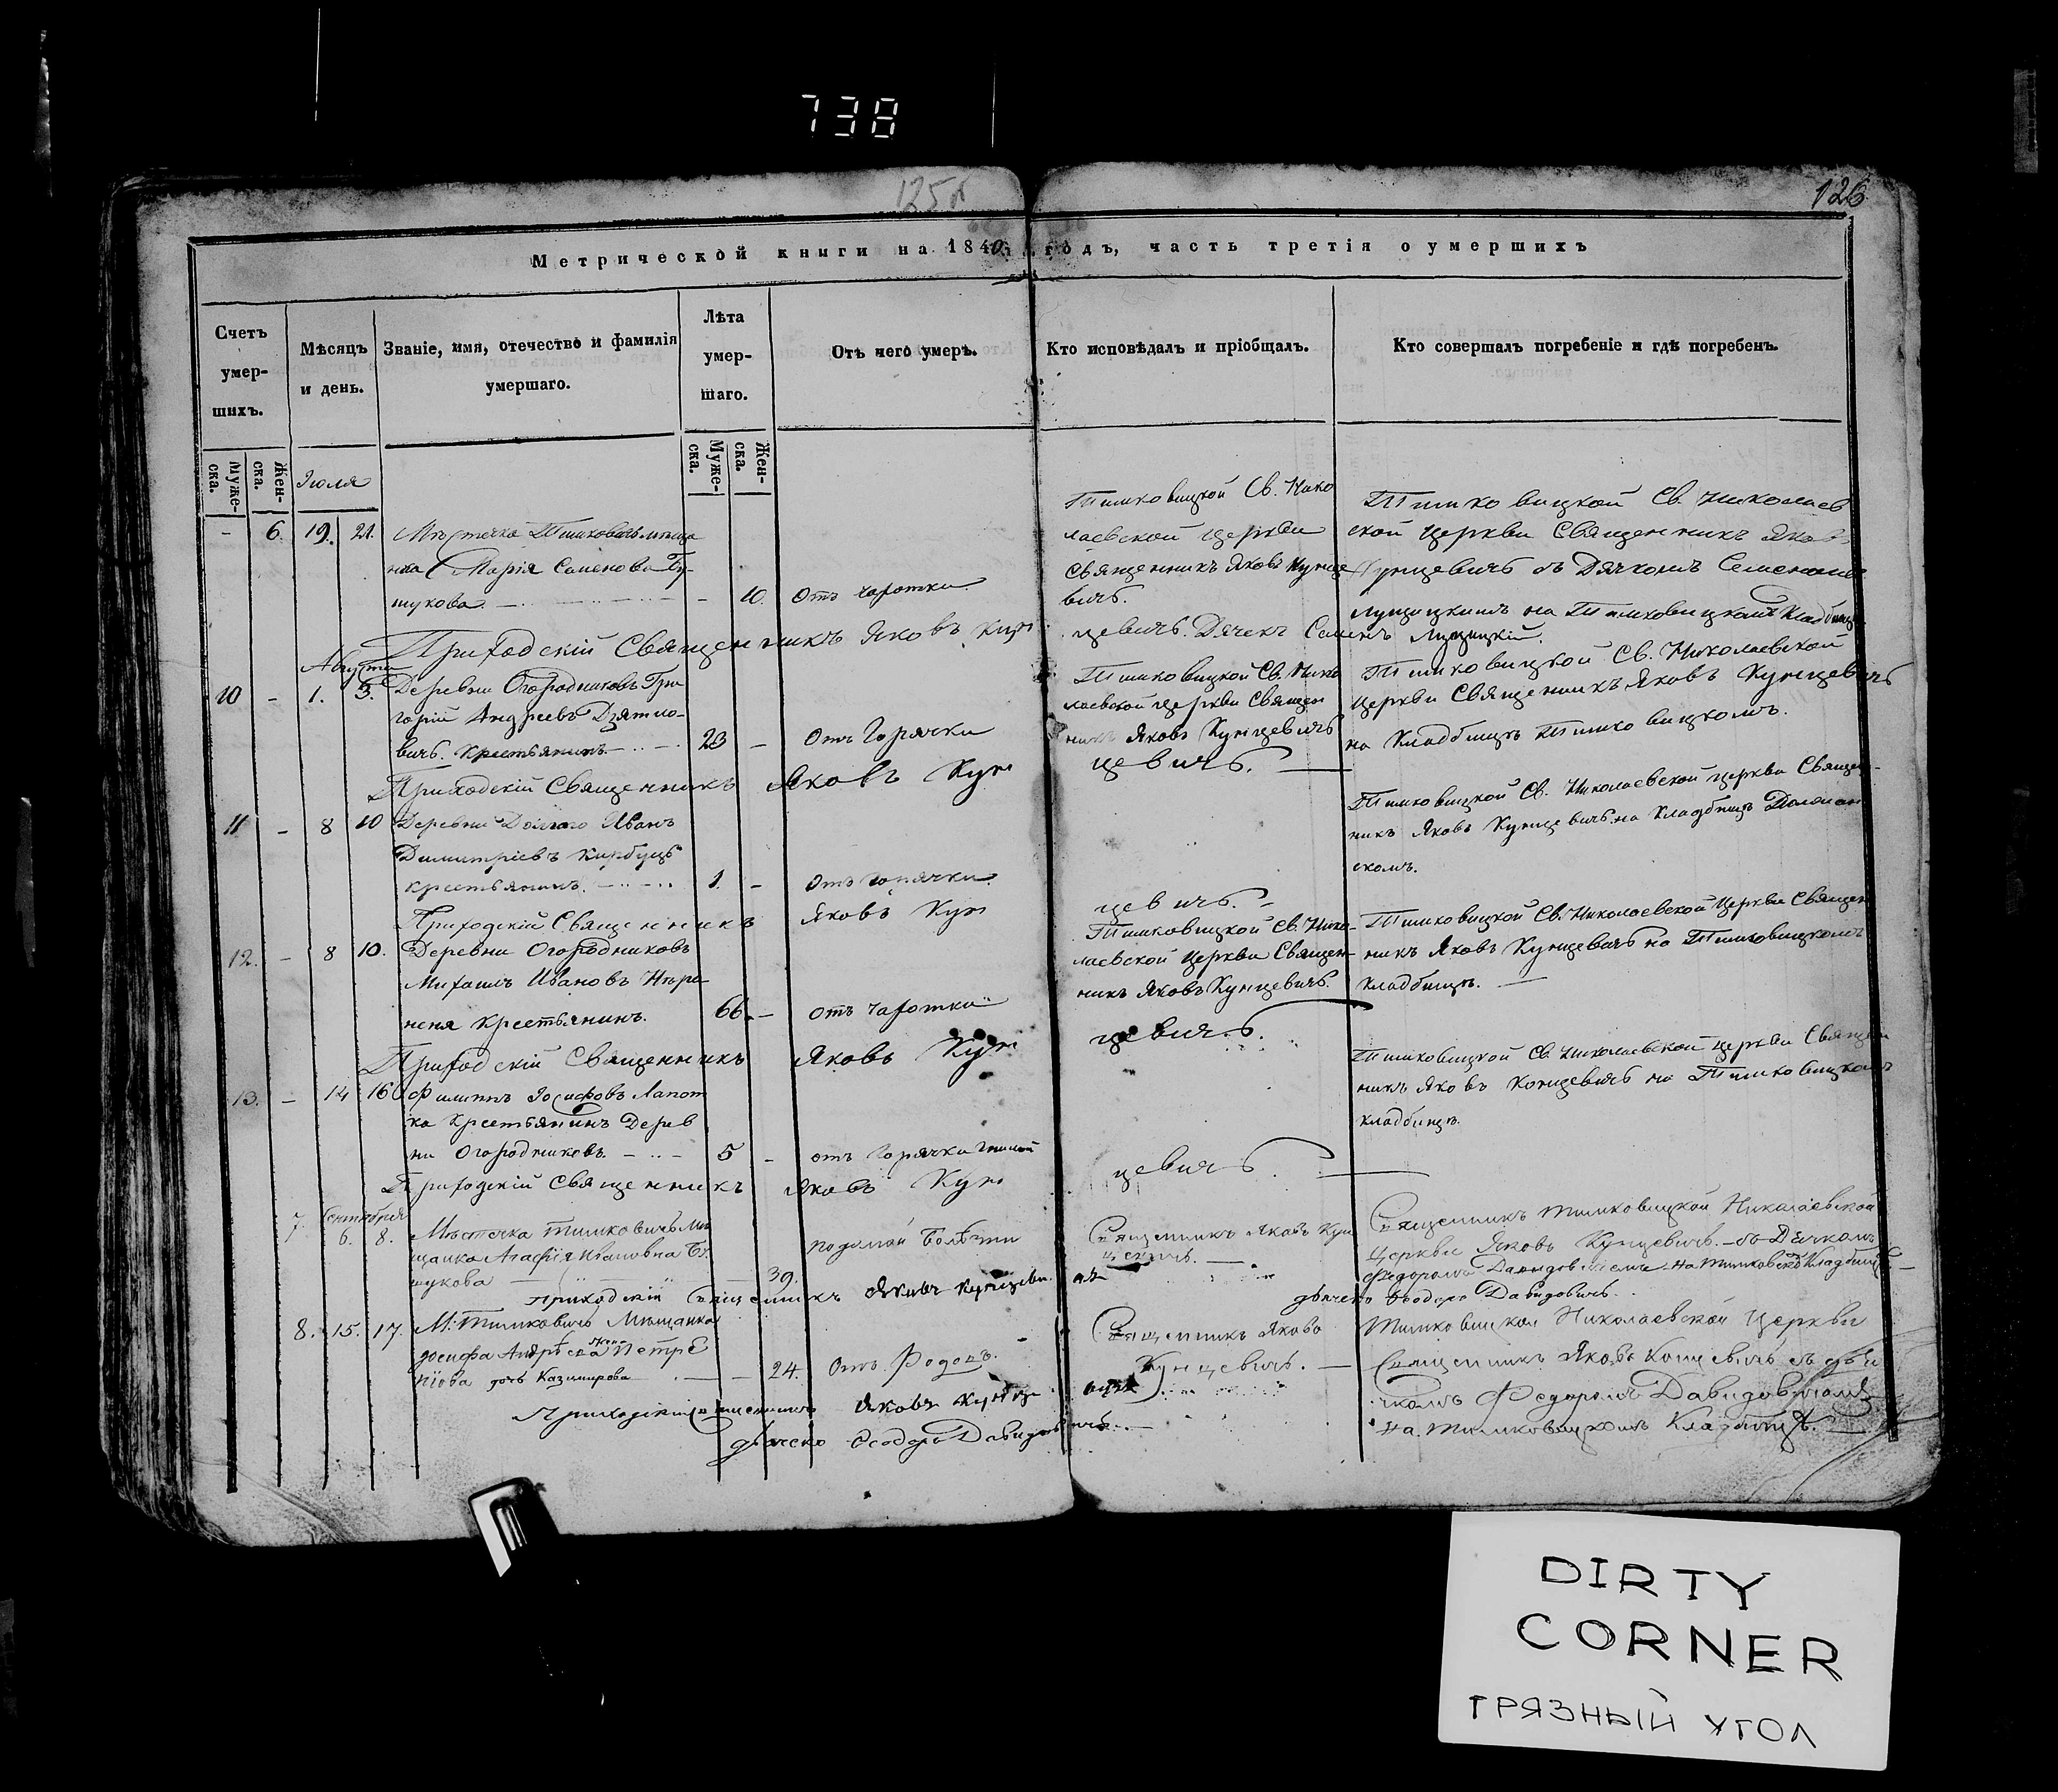 738
125б
126
Метрической книги на 1840 годъ, часть третія о умершихъ
Счетъ умер-шихъ.
Мѣсяцъ и день.
Званіе, имя, отечество и фамилія умершаго.
Лѣта умер-шаго.
Отъ чего умеръ.
Кто исповѣдалъ и пріобщалъ.
Кто совершалъ погребеніе и гдѣ погребенъ.
Муже-ска.
Жен-ска.
Муже-ска.
Жен-ска.
Іюля
- 6. 19. 21. Мѣстечка Тимковичъ мѣща
нка Марія Семенова
шукова - 10. Отъ чахотки
Тимковицкой Св. Нико
лаевской церкви
Священникъ Яковъ Кунце
вичъ.
Тимковицкой Св. Николаев
ской церкви Священникъ Яковъ
Кунцевичъ съ Дячкомъ Семеномъ
на Тимковицкомъ Кладбищѣ
Приходскій Священникъ Яковъ Кун
цевичъ. Дячекъ Семенъ
Августа
10 - 1. 3. Деревни Огородниковъ Гри
горій Андреевъ Дзятко-
вичъ. Крестьянинъ 23 - Отъ Горячки
Тимковицкой Св. Нико
лаевской церкви Священ
никъ Яковъ Кунцевичъ
Тимковицкой Св. Николаевской
церкви Священникъ Яковъ Кунцевичъ
на Кладбищѣ Тимковицкомъ.
Приходскій Священникъ Яковъ Кун
цевичъ.
11 - 8 10 Деревни Долгаго Иванъ
Димитріевъ
крестьянинъ. 1. - Отъ горячки.
Тимковицкой Св. Николаевской церкви Священ-
никъ Яковъ Кунцевичъ на Кладбищѣ
скомъ.
Приходскій Священникъ Яковъ Кун
цевичъ.
12. - 8 10. Деревни Огородниковъ
Михаилъ Ивановъ
неня Крестьянинъ. 66. - отъ чахотки
Тимковицкой Св. Нико-
лаевской церкви Священ-
никъ Яковъ Кунцевичъ.
Тимковицкой Св. Николаевской Церкви Священ
никъ Яковъ Кунцевичъ на Тимковицкомъ
Кладбищѣ.
Приходскій Священникъ Яковъ Кун
цевичъ.
13. - 14 16 Филиппъ Іосифовъ Лапот
ка Крестьянинъ Дерев
ни Огородниковъ. 5 - отъ Горячки гнилой
Тимковицкой Св. Николаевской церкви Священ
никъ Яковъ Концевичъ на Тимковицкомъ
кладбищѣ.
Приходскій Священникъ Яковъ Кун
цевичъ
Сентября
7. 6. 8. Мѣстечка Тимковичъ Мѣ
щанка Агафія Ивановна
шукова 39.
Болѣзни
Священникъ Яковъ Кун
цевичъ.
Священникъ Тимковицкой Николаевской
Церкви Яковъ Кунцевичъ. съ Дячкомъ
Федоромъ Давидовичемъ на Кладбищѣ
Приходскій Священникъ Яковъ Кунцеви
дьячекъ Ѳеодоръ Давидовичъ.
8. 15. 17. М. Тимковичъ Мѣщанка
дочь Казимирова 24. Отъ Родовъ.
Священникъ Яковъ
Кунцевичъ.
Тимковицкой Николаевской Церкви
Священникъ Яковъ Концевичъ съ дья
чкомъ Федоромъ Давидовичемъ
на Тимковицкомъ Кладбищѣ.
Приходскій Священникъ Яковъ Кунце
вичъ
дьячекъ Ѳеодоръ Давидовичъ.
DIRTY
CORNER
ГРЯЗНЫЙ УГОЛ